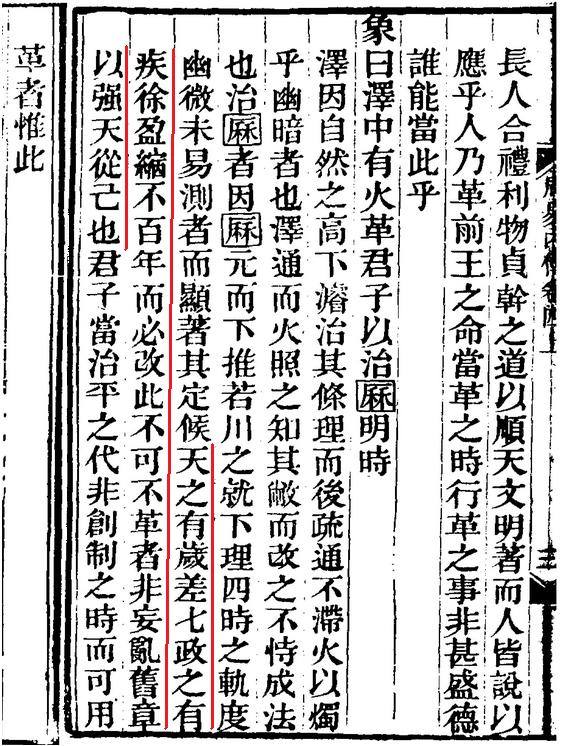 長人合禮利物貞幹之道以順天文明著而人皆說以
應乎人乃革前王之命當革之時行革之事非甚盛德
誰能當此乎
象曰澤中有火革君子以治厤明時
澤因自然之高下濬治其條理而後疏通不滯火以燭
乎幽暗者也澤通而火照之知其敝而改之不恃成法
也治厤者因厤元而下推若川之就下理四時之軌度
幽微未易測者而顯著其定候天之有歲差七政之有
疾徐盈縮不百年而必改此不可不革者非妄亂舊章
以强天從己也君子當治平之代非創制之時而可用
革者惟此